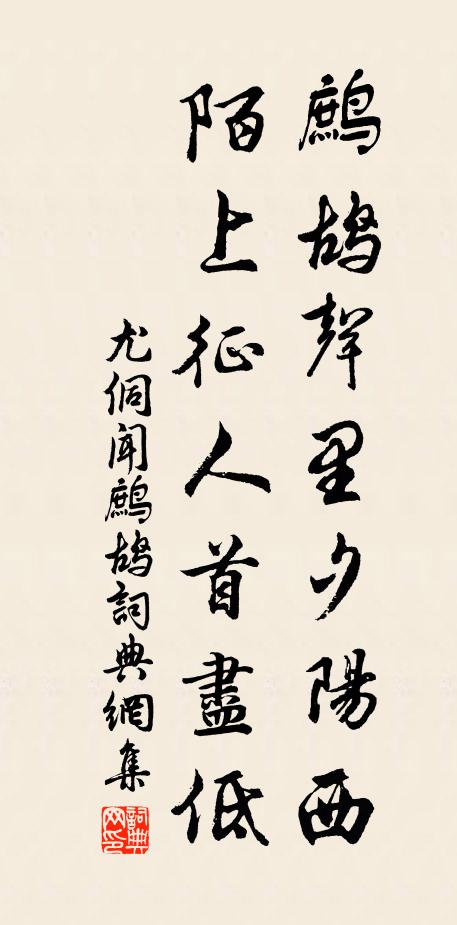 鷓鴣聲里夕陽西
陌上征人首盡低
尤侗聞鷓鴣詞典網集
詞典网印